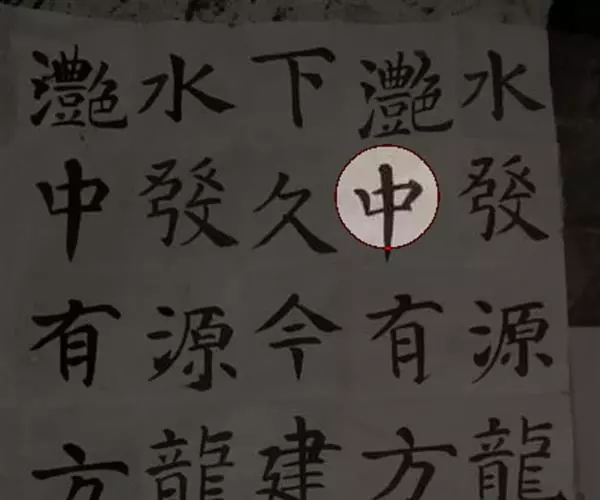 水發源龍
灧中有方
下久今建
水發源龍
灧中有方